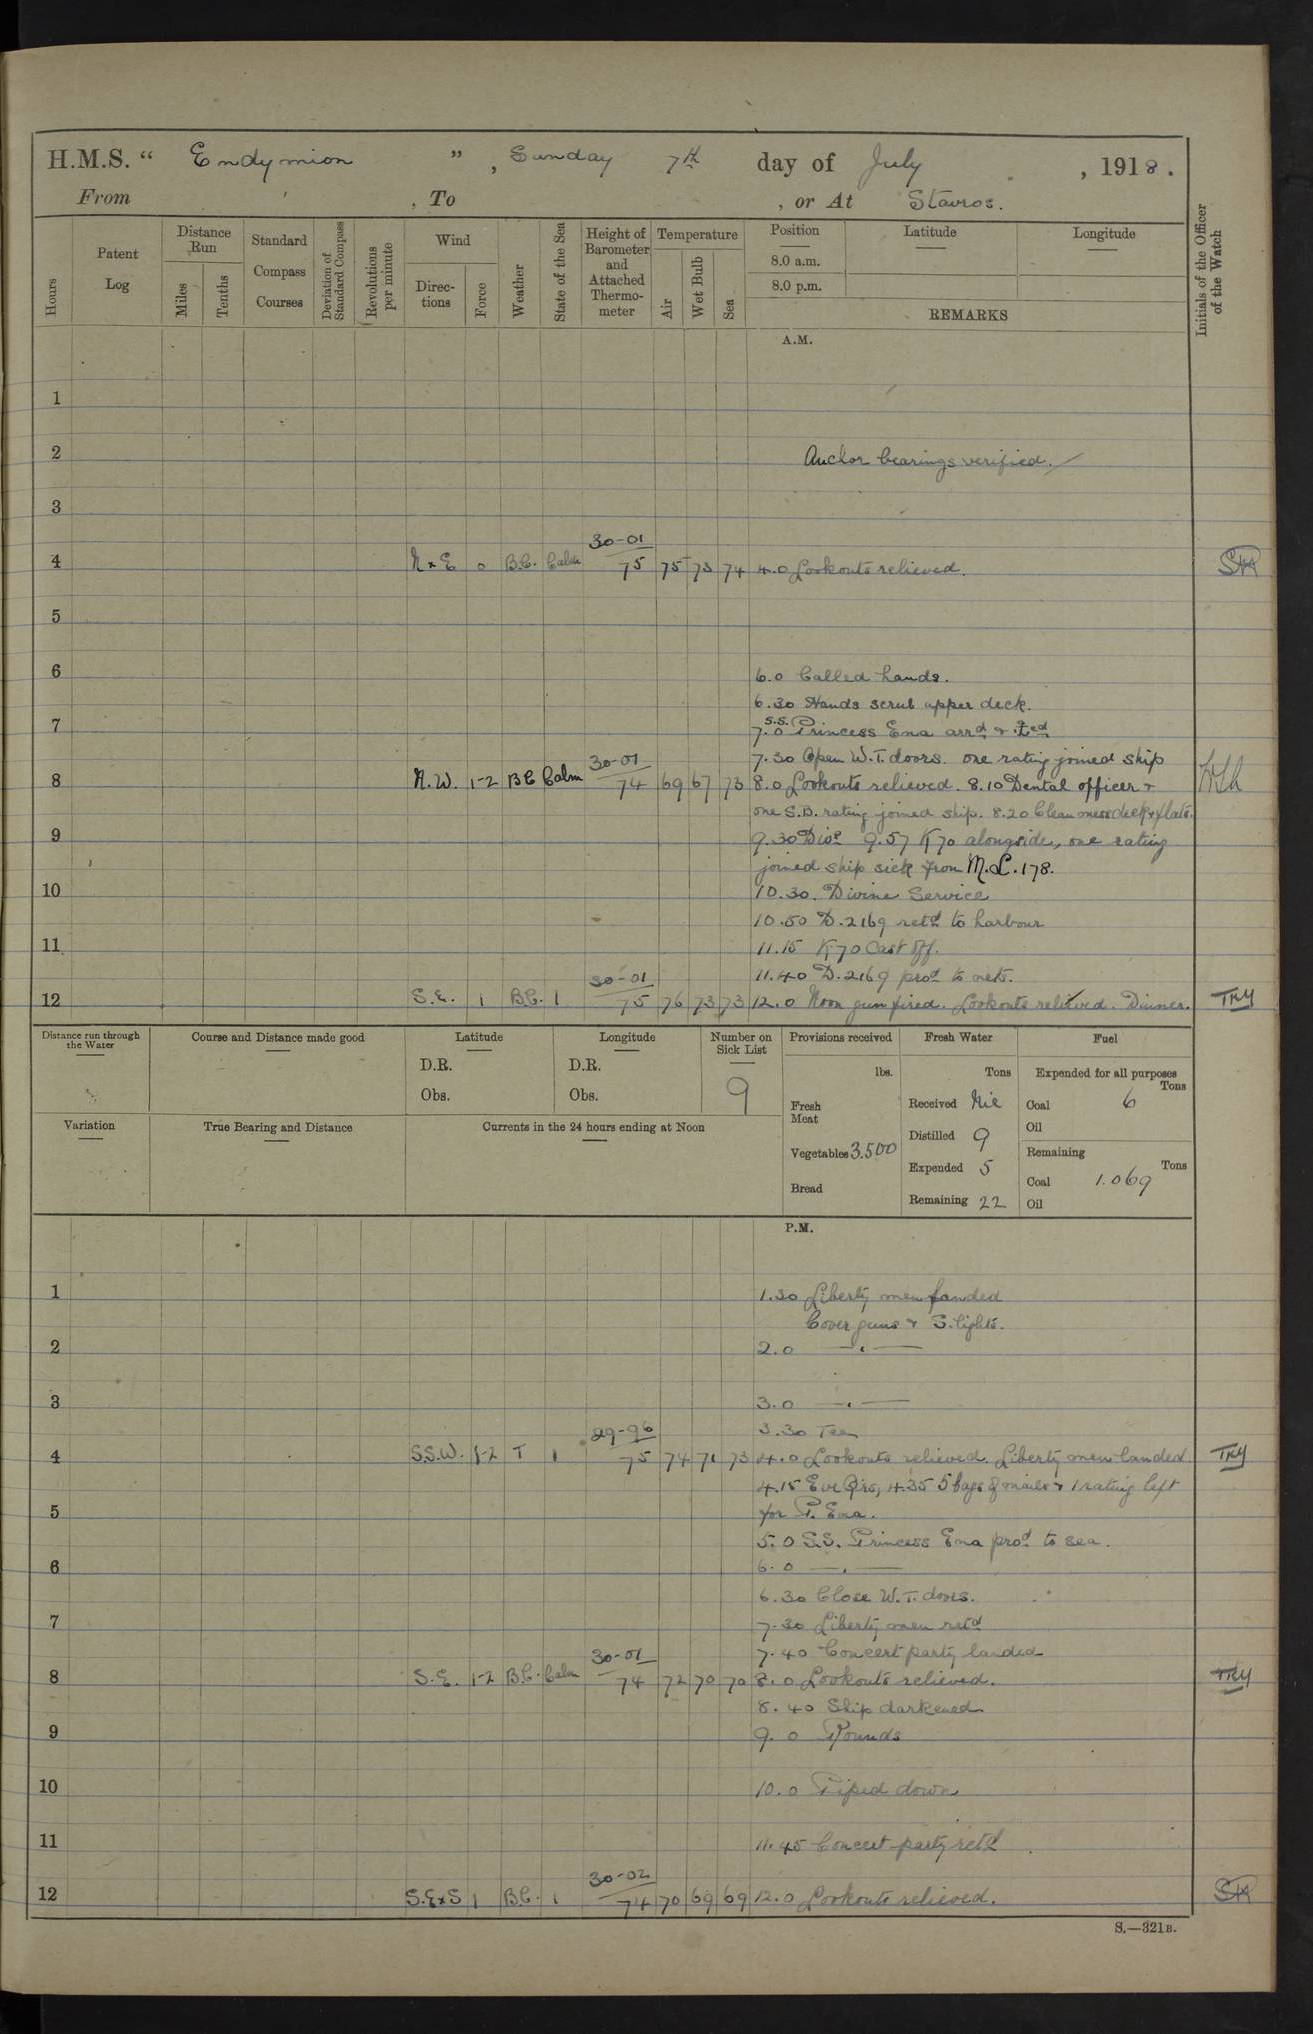 H.M.S. " Endymion " , Sunday 7th day of July , 1918.
From , To , or At Stavros.
Hours
Patent Log
Distance Run
Miles
Tenths
Standard Compass Courses
Deviation of Standard Compass
Revolutions per minute
Wind
Direc-tions
Force
Weather
State of the Sea
Height of Barometer and Attached Thermo-meter
Temperature
Air
Wet Bulb
Sea
Position
8.0 a.m.
8.0 p.m.
Latitude
Longitude
REMARKS
Initials of the Officer of the Watch
A.M.
1
2 Anchor bearings verified.
3
30-01
4 N x E 0 B.C. Calm 75 75 73 74 4.0 Lookouts relieved.
5
6 6.0 Called hands.
6.30 Hands scrub upper deck.
7 7.0 S.S. Princess Ena arrd &
7.30 Open W.T. doors. one rating joined ship
30-01
8 N.W. 1-2 BC Calm 74 69 67 73 8.0 Lookouts relieved. 8.10 Dental officer +
one S.B. rating joined ship. 8.20 Clean messdeck & flats.
9 9.30 Divs 9.57 K70 alongside, one rating
joined ship sick from M.L. 178.
10 10.30. Divine Service
10.50 D.2169 retd to harbour
11 11.15 K70 Cast off.
11.40 D.2169 prod to nets.
30-01
12 S.E. 1 B.C. 1 75 76 73 73 12.0 Noon gun fired. Lookouts relieved. Dinner. TRY
Distance run through the Water
Course and Distance made good
Latitude
D.R.
Obs.
Longitude
D.R.
Obs.
Number on Sick List
9
Provisions received
lbs.
Fresh Meat
Vegetables 3.500
Bread
Fresh Water
Tons
Received Nil
Distilled 9
Expended 5
Remaining 22
Fuel
Expended for all purposes
Tons
Coal 6
Oil
Remaining
Tons
Coal 1.069
Oil
Variation
True Bearing and Distance
Currents in the 24 hours ending at Noon
P.M.
1 1.30 Liberty men landed
Cover guns + S.lights.
2 2.0 — " —
3 3.0 — " —
3.30 Tea
29-96
4 S.S.W. 1-2 T 1 75 74 71 73 4.0 Lookouts relieved. Liberty men landed. TRY
4.15 Eve Qrs, 4.35 5 bags of mails + 1 rating left
5 for P. Ena.
5.0 S.S. Princess Ena prod to sea.
6 6.0 — " —
6.30 Close W.T. doors.
7 7.30 Liberty men retd
7.40 Concert party landed
30-01
8 S.E. 1-2 B.C. Calm 74 72 70 70 8.0 Lookouts relieved. TRY
8.40 Ship darkened
9 9.0 Rounds
10 10.0 Piped down
11 11.45 Concert party retd
30-02
12 S.ExS 1 B.C. 1 74 70 69 69 12.0 Lookouts relieved.
S.—321B.